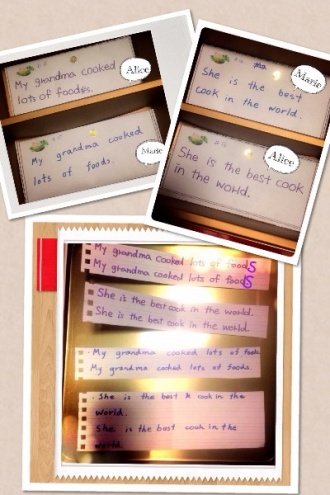 Alice
My grandma cooked
lots of foodes.
Marie
My grandma cooked
lots of foods.
ma
Marie
She is the best
cook in the world.
Alice
She is the best cook
in the world.
My grandma cooked lots of foodS
My grandma cooked lots of foodS
She is the best cook in the world.
She is the best cook in the world.
My grandma cooked lots of foods
My grandma cooked lots of foods
She is the best k cook in the
world.
She is the best cook in the
world.